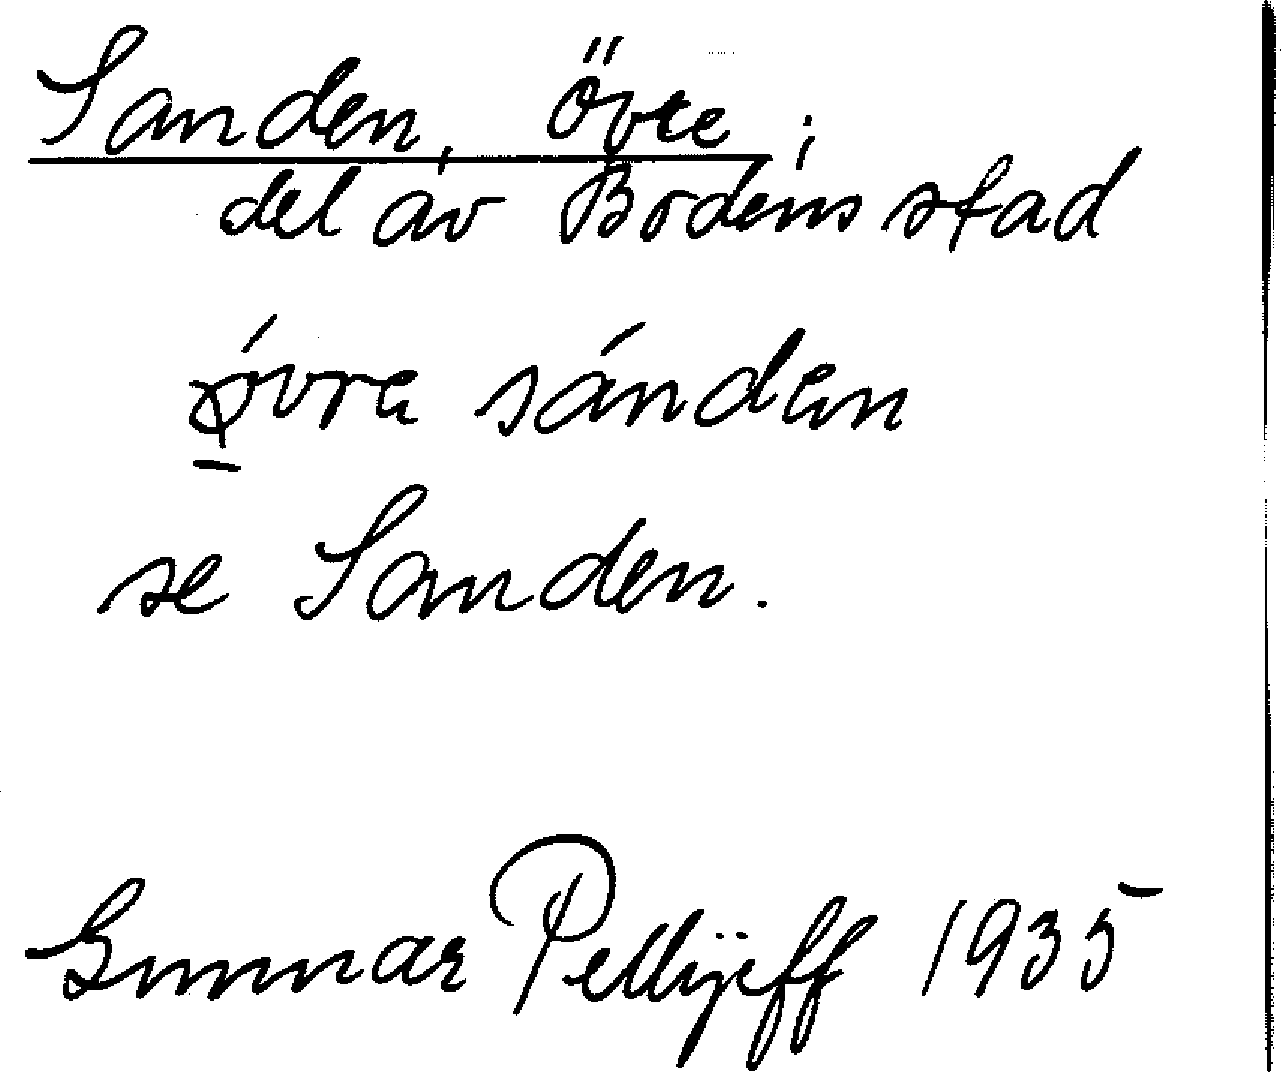 Sanden, Övre;
del av Bodens stad
ǿ̱vra sándan
se Sanden.
Gunnar Pellijeff 1935